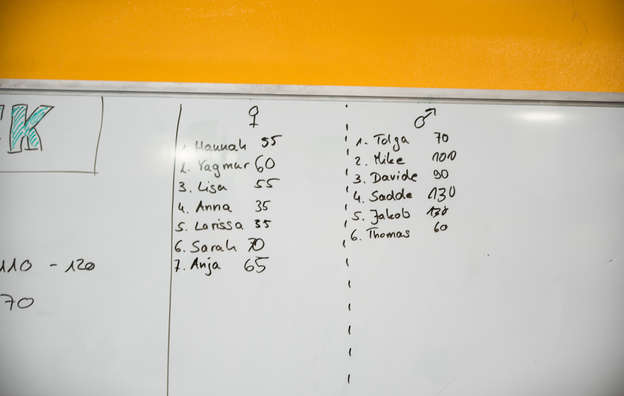 K
110 - 120
70
♀
1. Hannah 55
2. Yagmur 60
3. Lisa 55
4. Anna 35
5. Larissa 35
6. Sarah 70
7. Anja 65
♂
1. Tolga 70
2. Mike 100
3. Davide 90
4. Sadde 130
5. Jakob
6. Thomas 60